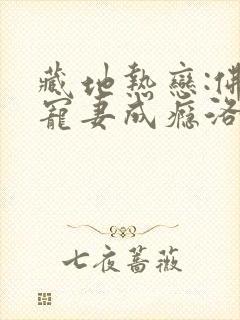 藏地熱戀:佛
寵妻成癮洛
七夜薔薇